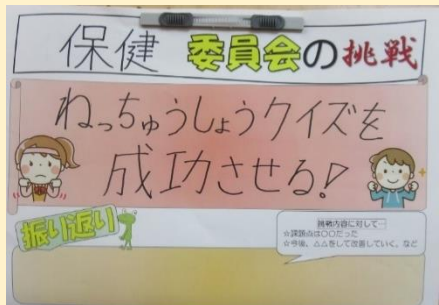 保健 委員会の挑戦
ねっちゅうしょうクイズを
成功させる!
振り返り
挑戦内容に対して…
☆課題点は〇〇だった
☆今後、△△をして改善していく。など